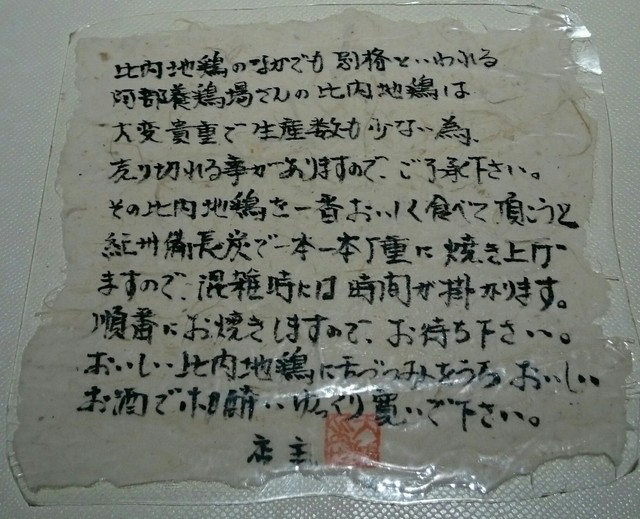 比内地鶏のなかでも別格といわれる
阿部養鶏場さんの比内地鶏は
大変貴重で生産数も少ない為、
売り切れる事がありますので、ご了承下さい。
その比内地鶏を一番おいしく食べて頂こうと
紀州備長炭で一本一本丁重に焼き上げ
ますので、混雑時には時間が掛かります。
順番にお焼きしますので、お待ち下さい。
おいしい比内地鶏に舌づつみをうち、おいしい
お酒で ゆっくり寛いで下さい。
店主